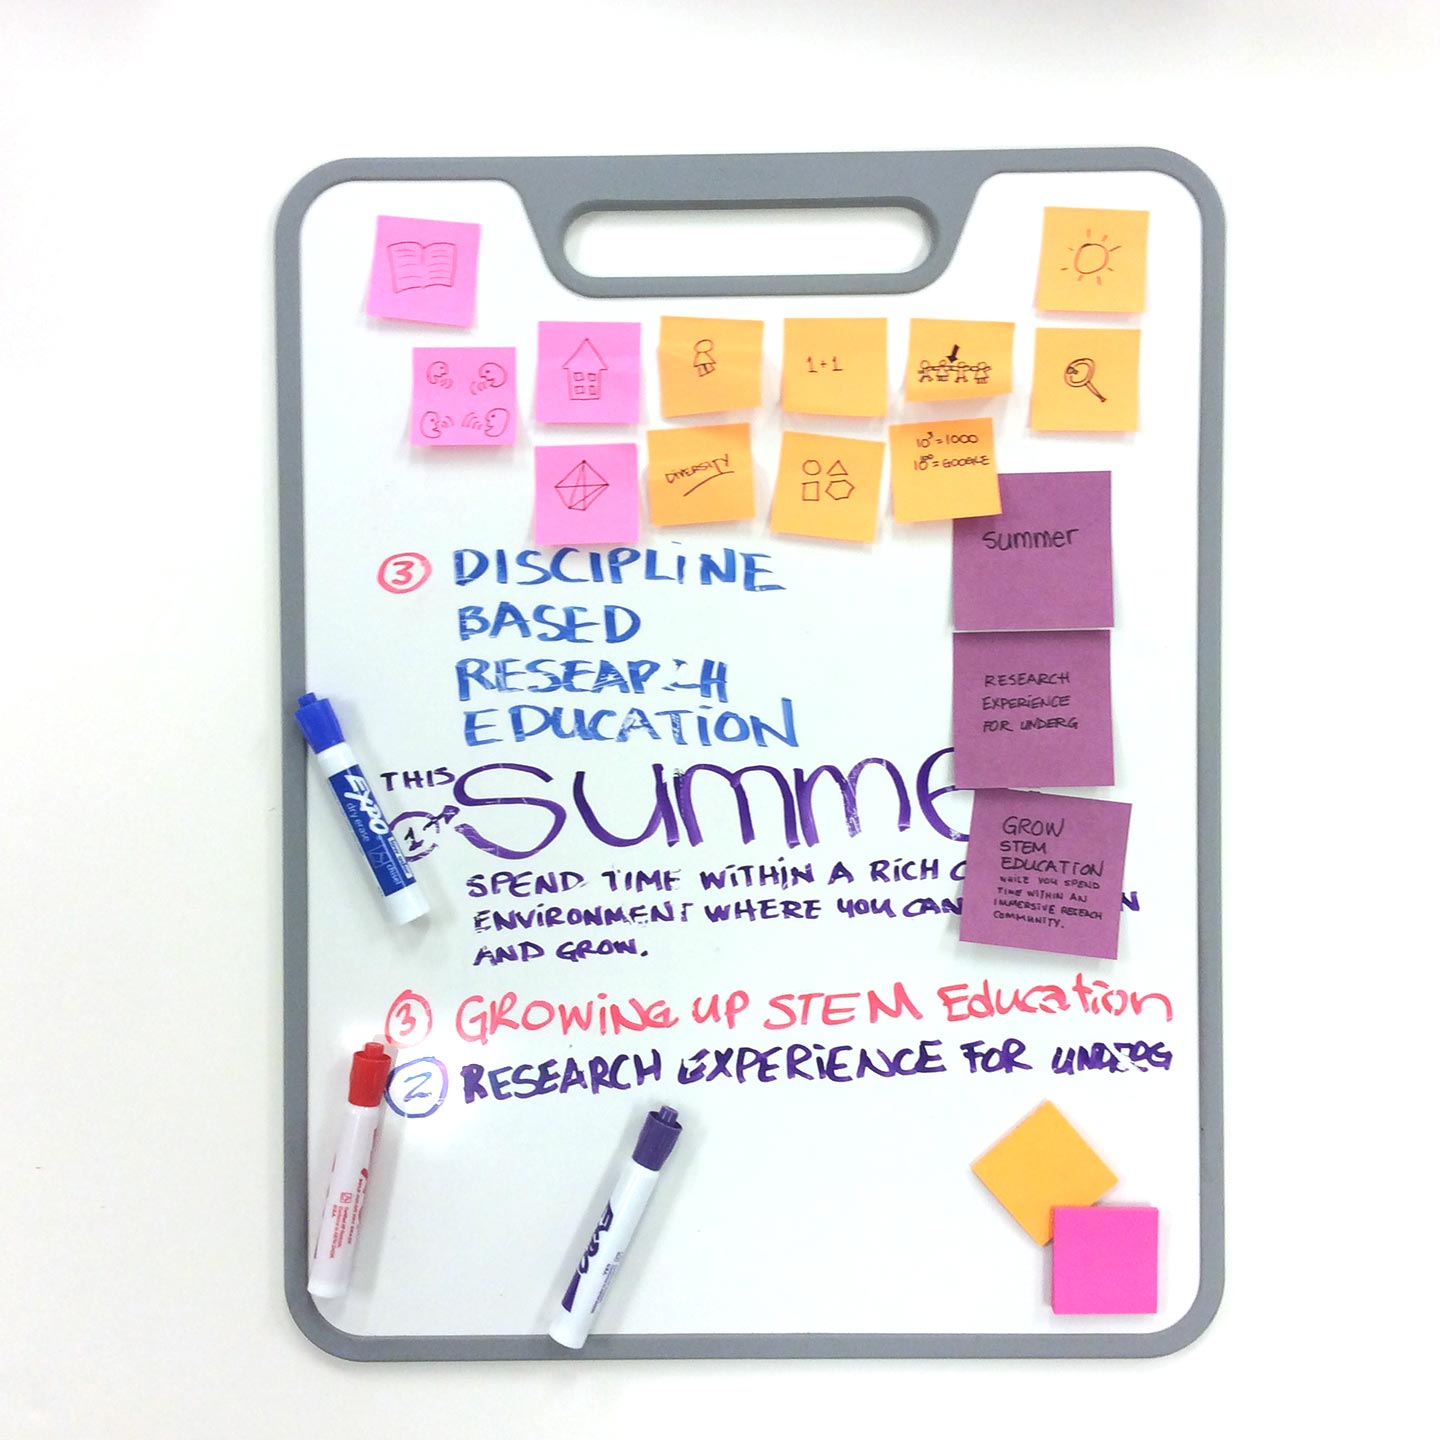 1+1
DIVERSITY
10³=1000
10¹⁰⁰=GOOGLE
Summer
3 DISCIPLINE
BASED
RESEARCH
EDUCATION
RESEARCH
EXPERIENCE
FOR UNDERG
THIS
1 Summe
SPEND TIME WITHIN A RICH C
ENVIRONMENT WHERE YOU CAN N
AND GROW.
GROW
STEM
EDUCATION
WHILE YOU SPEND
TIME WITHIN AN
IMMERSIVE RESEACH
COMMUNITY.
3 GROWING UP STEM Education
2 RESEARCH EXPERIENCE FOR UNDERG
EXPO
dry erase
chisel
EXPO